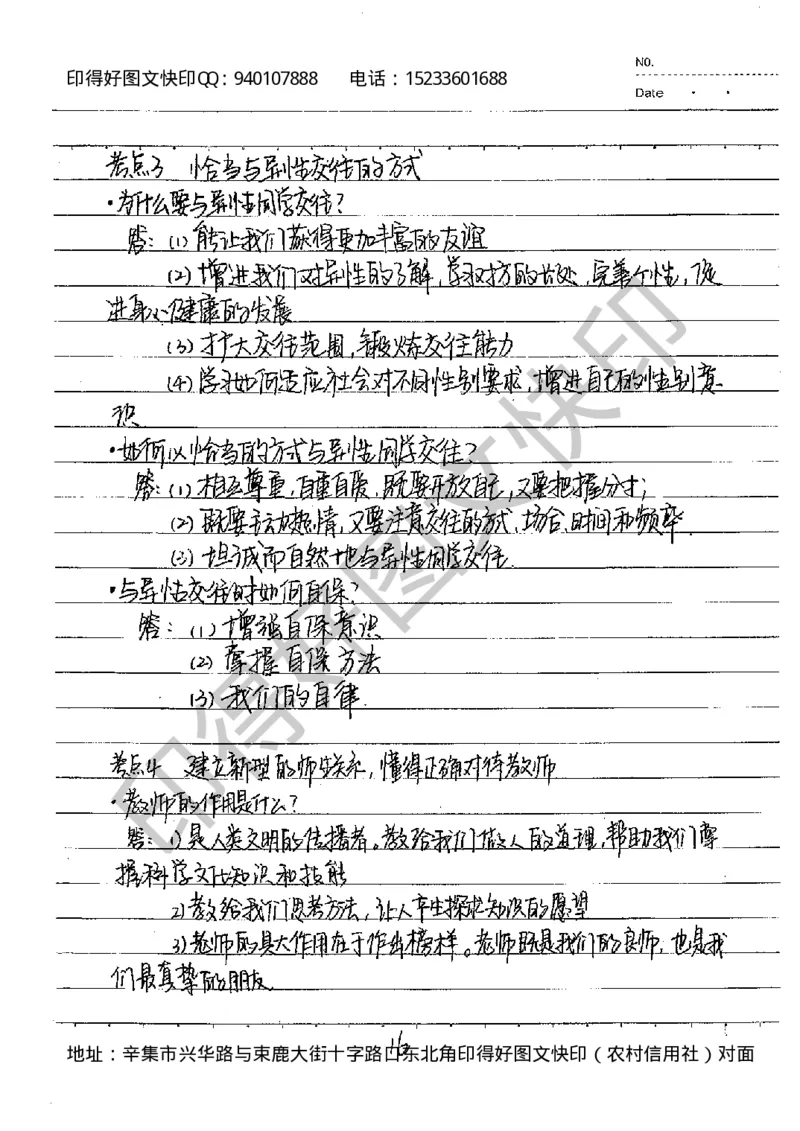 印得好图文快印QQ：940107888 电话：15233601688
NO.
Date
考点3 恰当与异性交往的方式
·为什么要与异性同学交往？
答：(1)能让我们获得更加丰富的友谊
(2)增进我们对异性的了解，学习对方的长处，完善个性，促
进身心健康的发展
(3)扩大交往范围，锻炼交往能力
(4)学习如何适应社会对不同性别要求，增进自己的性别意
识
·如何以恰当的方式与异性同学交往？
答：(1)相互尊重，自重自爱，既要开放自己，又要把握分寸；
(2)既要主动热情，又要注意交往的方式、场合、时间和频率.
(3)坦诚而自然地与异性同学交往.
·与异性交往时如何自保？
答：(1)增强自保意识
(2)掌握自保方法
(3)我们的自律.
考点4 建立新型的师生关系，懂得正确对待教师
·教师的作用是什么？
答：1)是人类文明的传播者。教给我们做人的道理，帮助我们掌
握科学文化知识和技能
2)教给我们思考方法，让人产生探求知识的愿望
3)老师的最大作用在于作出榜样。老师既是我们的良师，也是我
们最真挚的朋友.
地址：辛集市兴华路与束鹿大街十字路口东北角印得好图文快印（农村信用社）对面
印得好图文快印